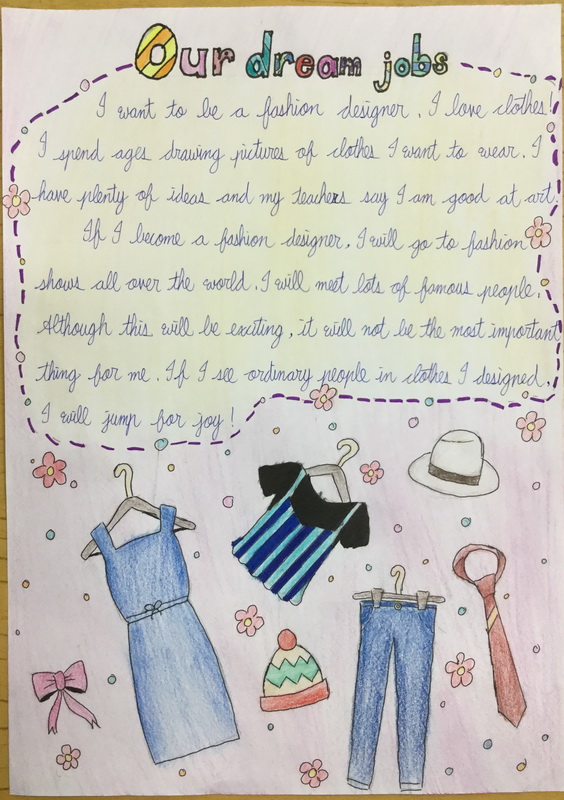 Our dream jobs
I want to be a fashion designer. I love clothes!
I spend ages drawing pictures of clothes I want to wear. I
have plenty of ideas and my teachers say I am good at art.
If I become a fashion designer, I will go to fashion
shows all over the world. I will meet lots of famous people.
Although this will be exciting, it will not be the most important
thing for me. If I see ordinary people in clothes I designed,
I will jump for joy!